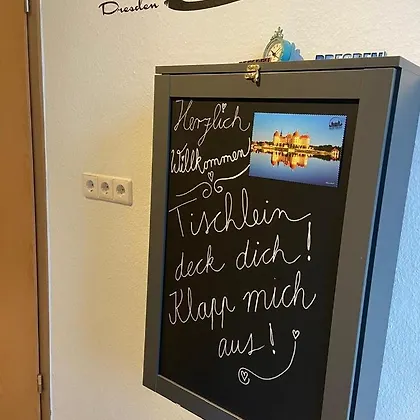 Dresden
DRESDEN
Herzlich
Willkommen
Tischlein
deck dich!
Klapp mich
aus!